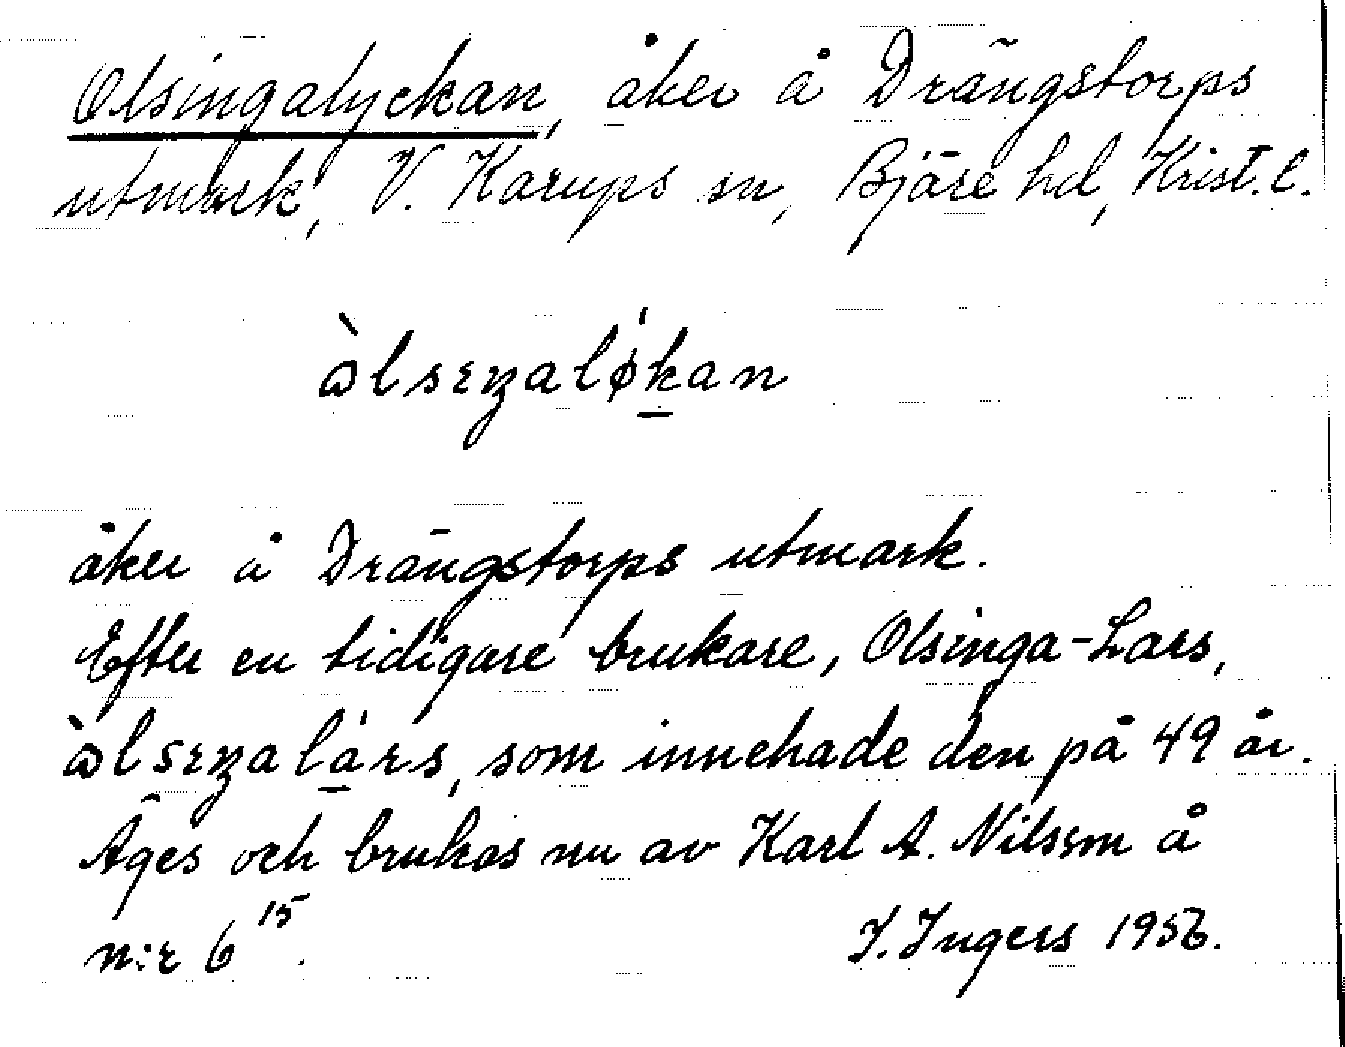 Olsingalyckan, åker å Drängstorps
utmark, V. Karups sn, Bjäre hd, Krist. l.
åker å Drängstorps utmark.
Efter en tidigare brukare, Olsinga-Lars,
som innehade den på 49 år.
Äges och brukas nu av Karl A. Nilsson å
n:r 6¹⁵.
I. Ingers 1956.